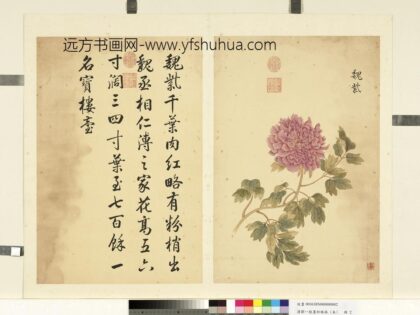 远方书画网-www.yfshuhua.com
魏紫
魏紫千葉肉紅略有粉梢出
魏丞相仁溥之家花髙五六
寸濶三四寸葉至七百餘一
名寳樓臺